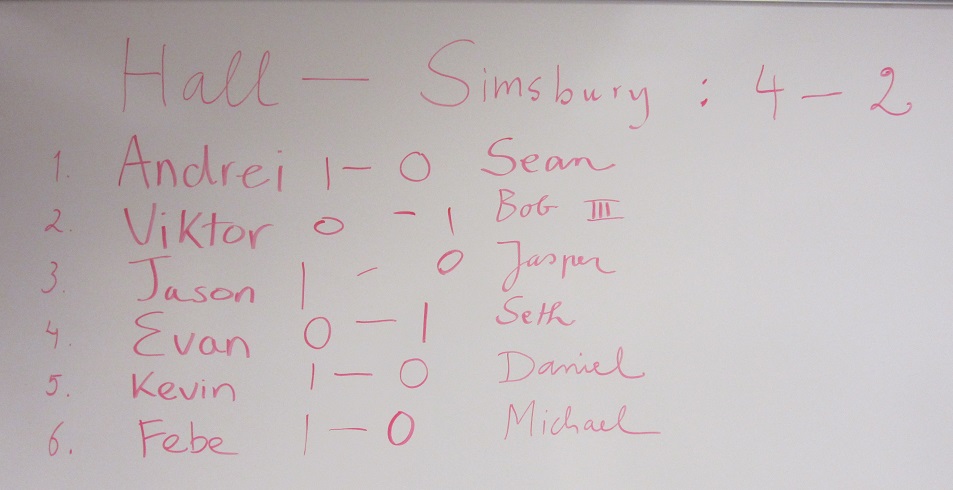 Hall — Simsbury : 4 – 2
1. Andrei 1 – 0 Sean
2. Viktor 0 – 1 Bob III
3. Jason 1 – 0 Jasper
4. Evan 0 – 1 Seth
5. Kevin 1 – 0 Daniel
6. Febe 1 – 0 Michael